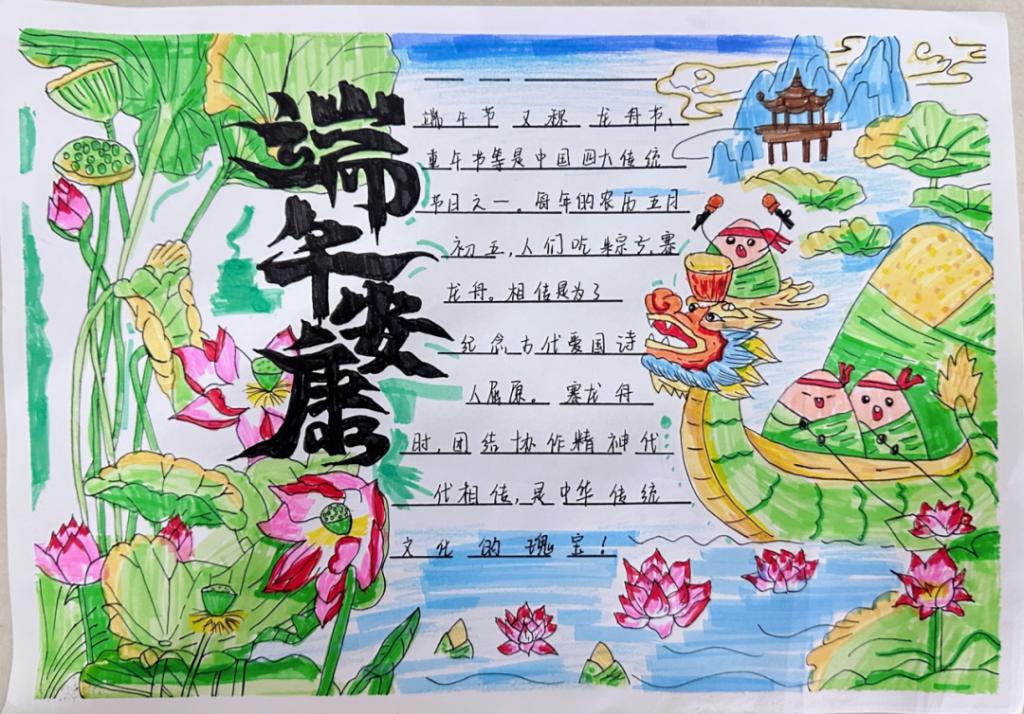 端午安康
端午节又称龙舟节、
重午节等是中国四大传统
节日之一。每年的农历五月
初五，人们吃粽子，赛
龙舟。相传是为了
纪念古代爱国诗
人屈原。赛龙舟
时，团结协作精神代
代相传，是中华传统
文化的瑰宝！